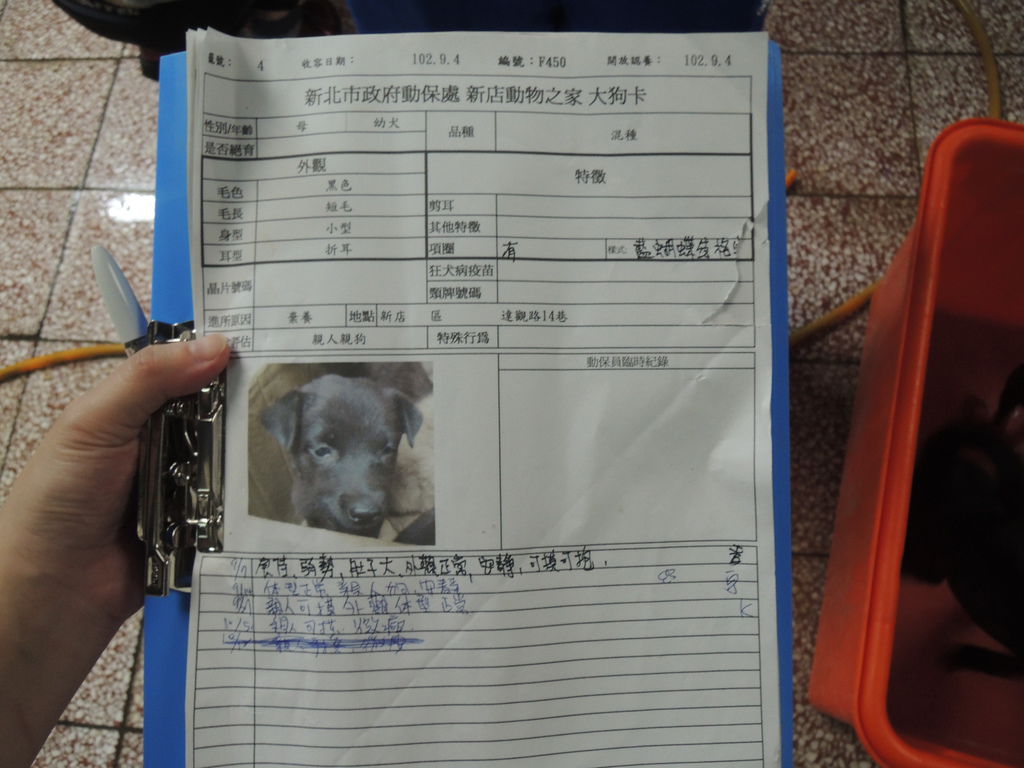 號： 4 收容日期： 102.9.4 編號：F450 開放認養： 102.9.4
新北市政府動保處 新店動物之家 大狗卡
性別/年齡 母 幼犬 品種 混種
是否絕育
外觀 特徵
毛色 黑色
毛長 短毛 剪耳
身型 小型 其他特徵
耳型 折耳 項圈 有 樣式: 藍蝴蝶
晶片號碼 狂犬病疫苗
頸牌號碼
進所原因 棄養 地點 新店 區 達觀路14巷
評估 親人親狗 特殊行為
動保員臨時紀錄
食佳, 弱勢, 肚子大, 外觀正常, 安靜, 可摸可抱.
体型正常 親人 安靜
親人可摸 外觀体型正常 K
親人可